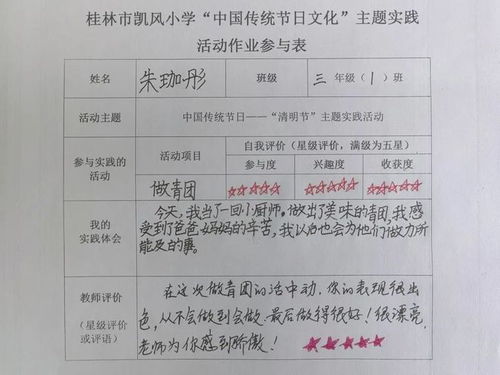 桂林市凯风小学“中国传统节日文化”主题实践
活动作业参与表
姓名 朱珈彤 班级 三年级（1）班
活动主题 中国传统节日——“清明节”主题实践活动
参与实践的
活动
活动项目 自我评价（星级评价，满级为五星）
参与度 兴趣度 收获度
做青团 ☆☆☆☆☆ ☆☆☆☆☆ ☆☆☆☆☆
我的
实践体会
今天，我当了一回小厨师。做出了美味的青团，我感
受到了爸爸妈妈的辛苦，我以后也会为他们做力所
能及的事。
教师评价
（星级评价
或评语）
在这次做青团的活中动，你的表现很出
色，从不会做到会做.最后做得很好！很漂亮，
老师为你感到骄傲！ ★★★★★